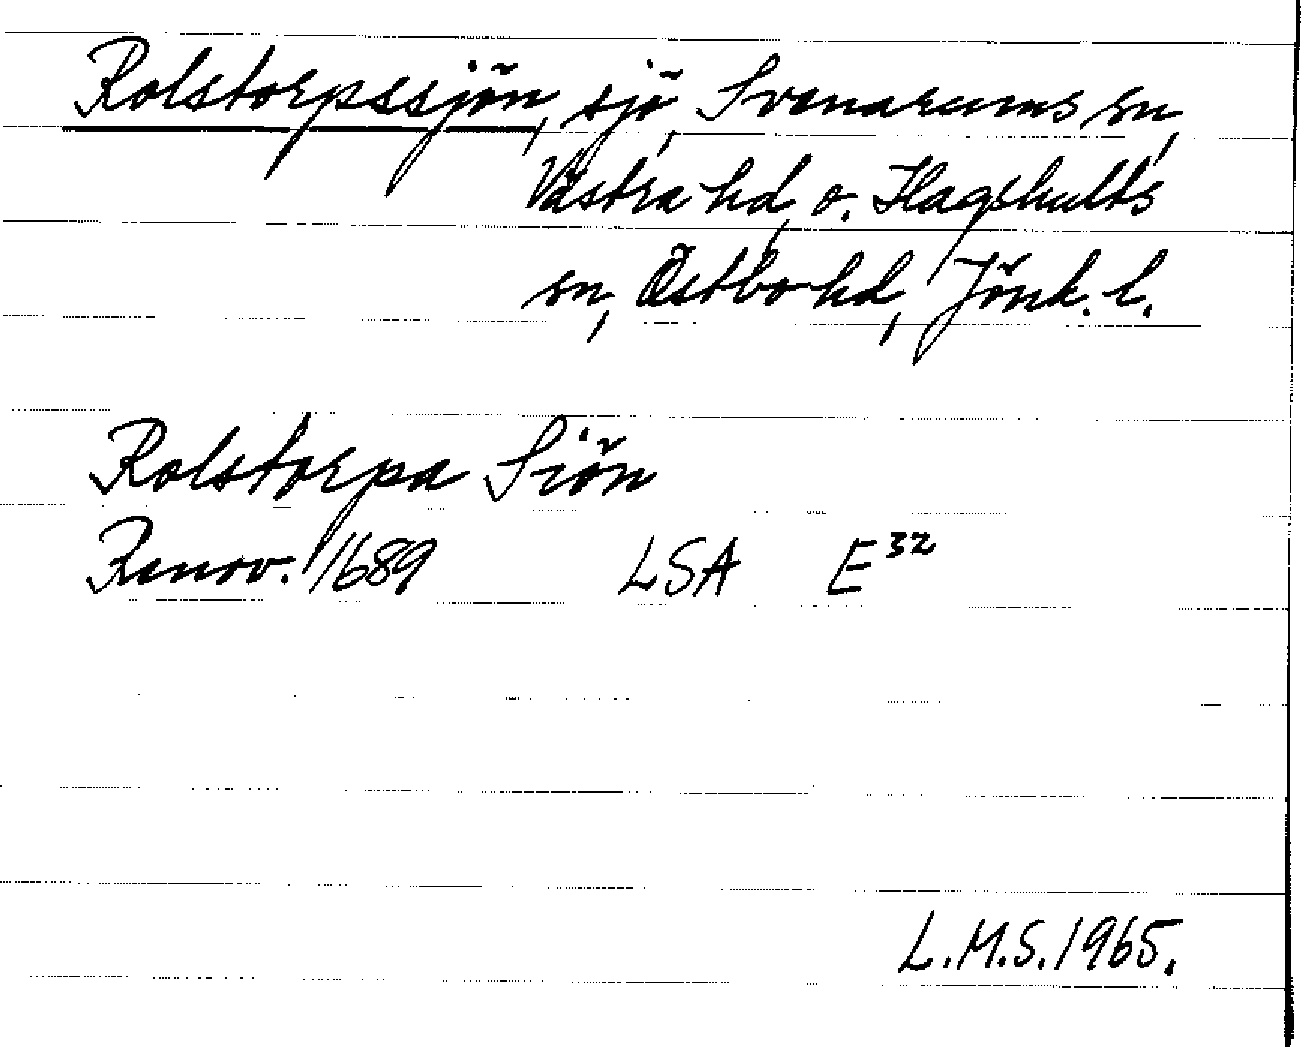 Rolstorpssjön, sjö, Svenarums sn,
Västra hd, o. Hagshults
sn, Östbo hd, Jönk. l.
Rolstorpa Siön
Renov. 1689 LSA E³²
L.M.S. 1965.